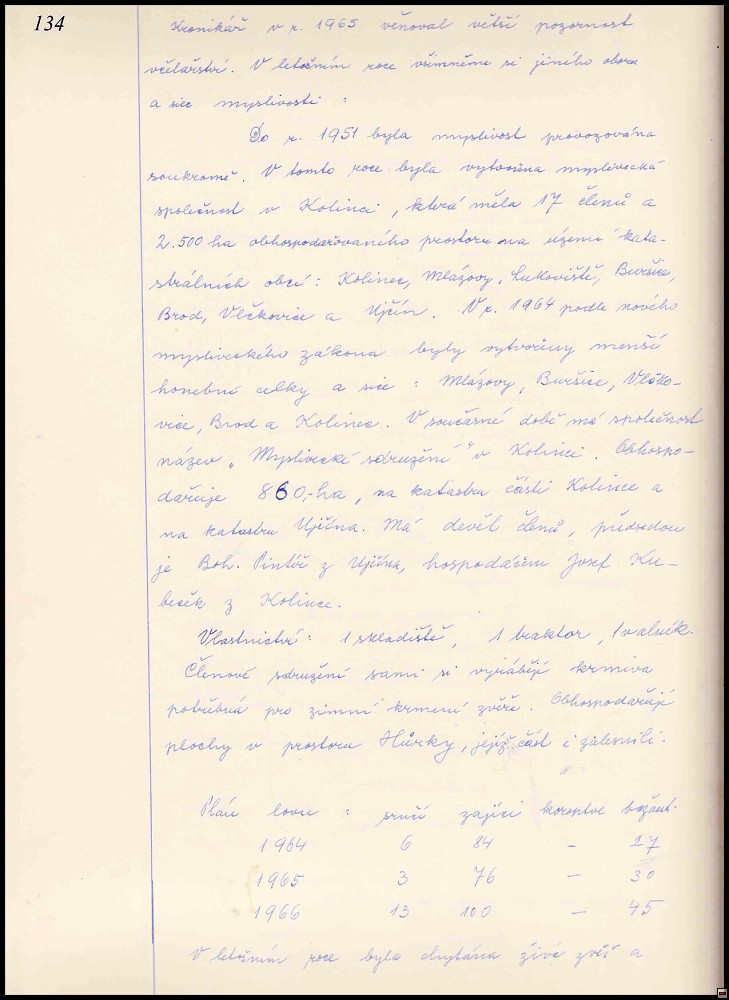 134
Kronikář v r. 1965 věnoval větší pozornost
včelařství. V letošním roce všimněme si jiného oboru
a sice myslivosti :
Do r. 1951 byla myslivost provozována
soukromě. V tomto roce byla vytvořena myslivecká
společnost v Kolinci, která měla 17 členů a
2.500 ha obhospodařovaného prostoru na území kata-
strálních obcí: Kolinec, Mlázovy, Lukoviště, Buršice,
Brod, Vlčkovice a Ujčín. V r. 1964 podle nového
mysliveckého zákona byly vytvořeny menší
honební celky a sice : Mlázovy, Buršice, Vlčko-
vice, Brod a Kolinec. V současné době má společnost
název „Myslivecké sdružení“ v Kolinci. Obhospo-
dařuje 860,-ha, na katastru části Kolince a
na katastru Ujčína. Má devět členů, předsedou
je Boh. Pintíř z Ujčína, hospodářem Josef Ku-
beček z Kolince.
Vlastnictví: 1 skladiště, 1 traktor, 1 valník.
Členové sdružení sami si vyrábějí krmiva
potřebná pro zimní krmení zvěře. Obhospodařují
plochy v prostoru Hůrky, jejíž část i zalesnili.
Plán lovu : srnčí zajíci koroptve bažant.
1964 6 84 - 27
1965 3 76 - 30
1966 13 100 - 45
V letošním roce byla chytána živá zvěř a